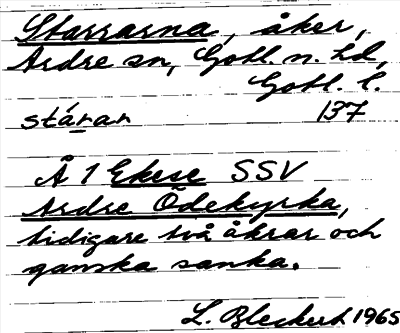 Starrarna, åker,
Ardre sn, Gotl. n. hd,
Gotl. l.
stárar 137
Å 1 Ekese SSV
Ardre Ödekyrka,
tidigare två åkrar och
ganska sanka.
L. Bleckert. 1965